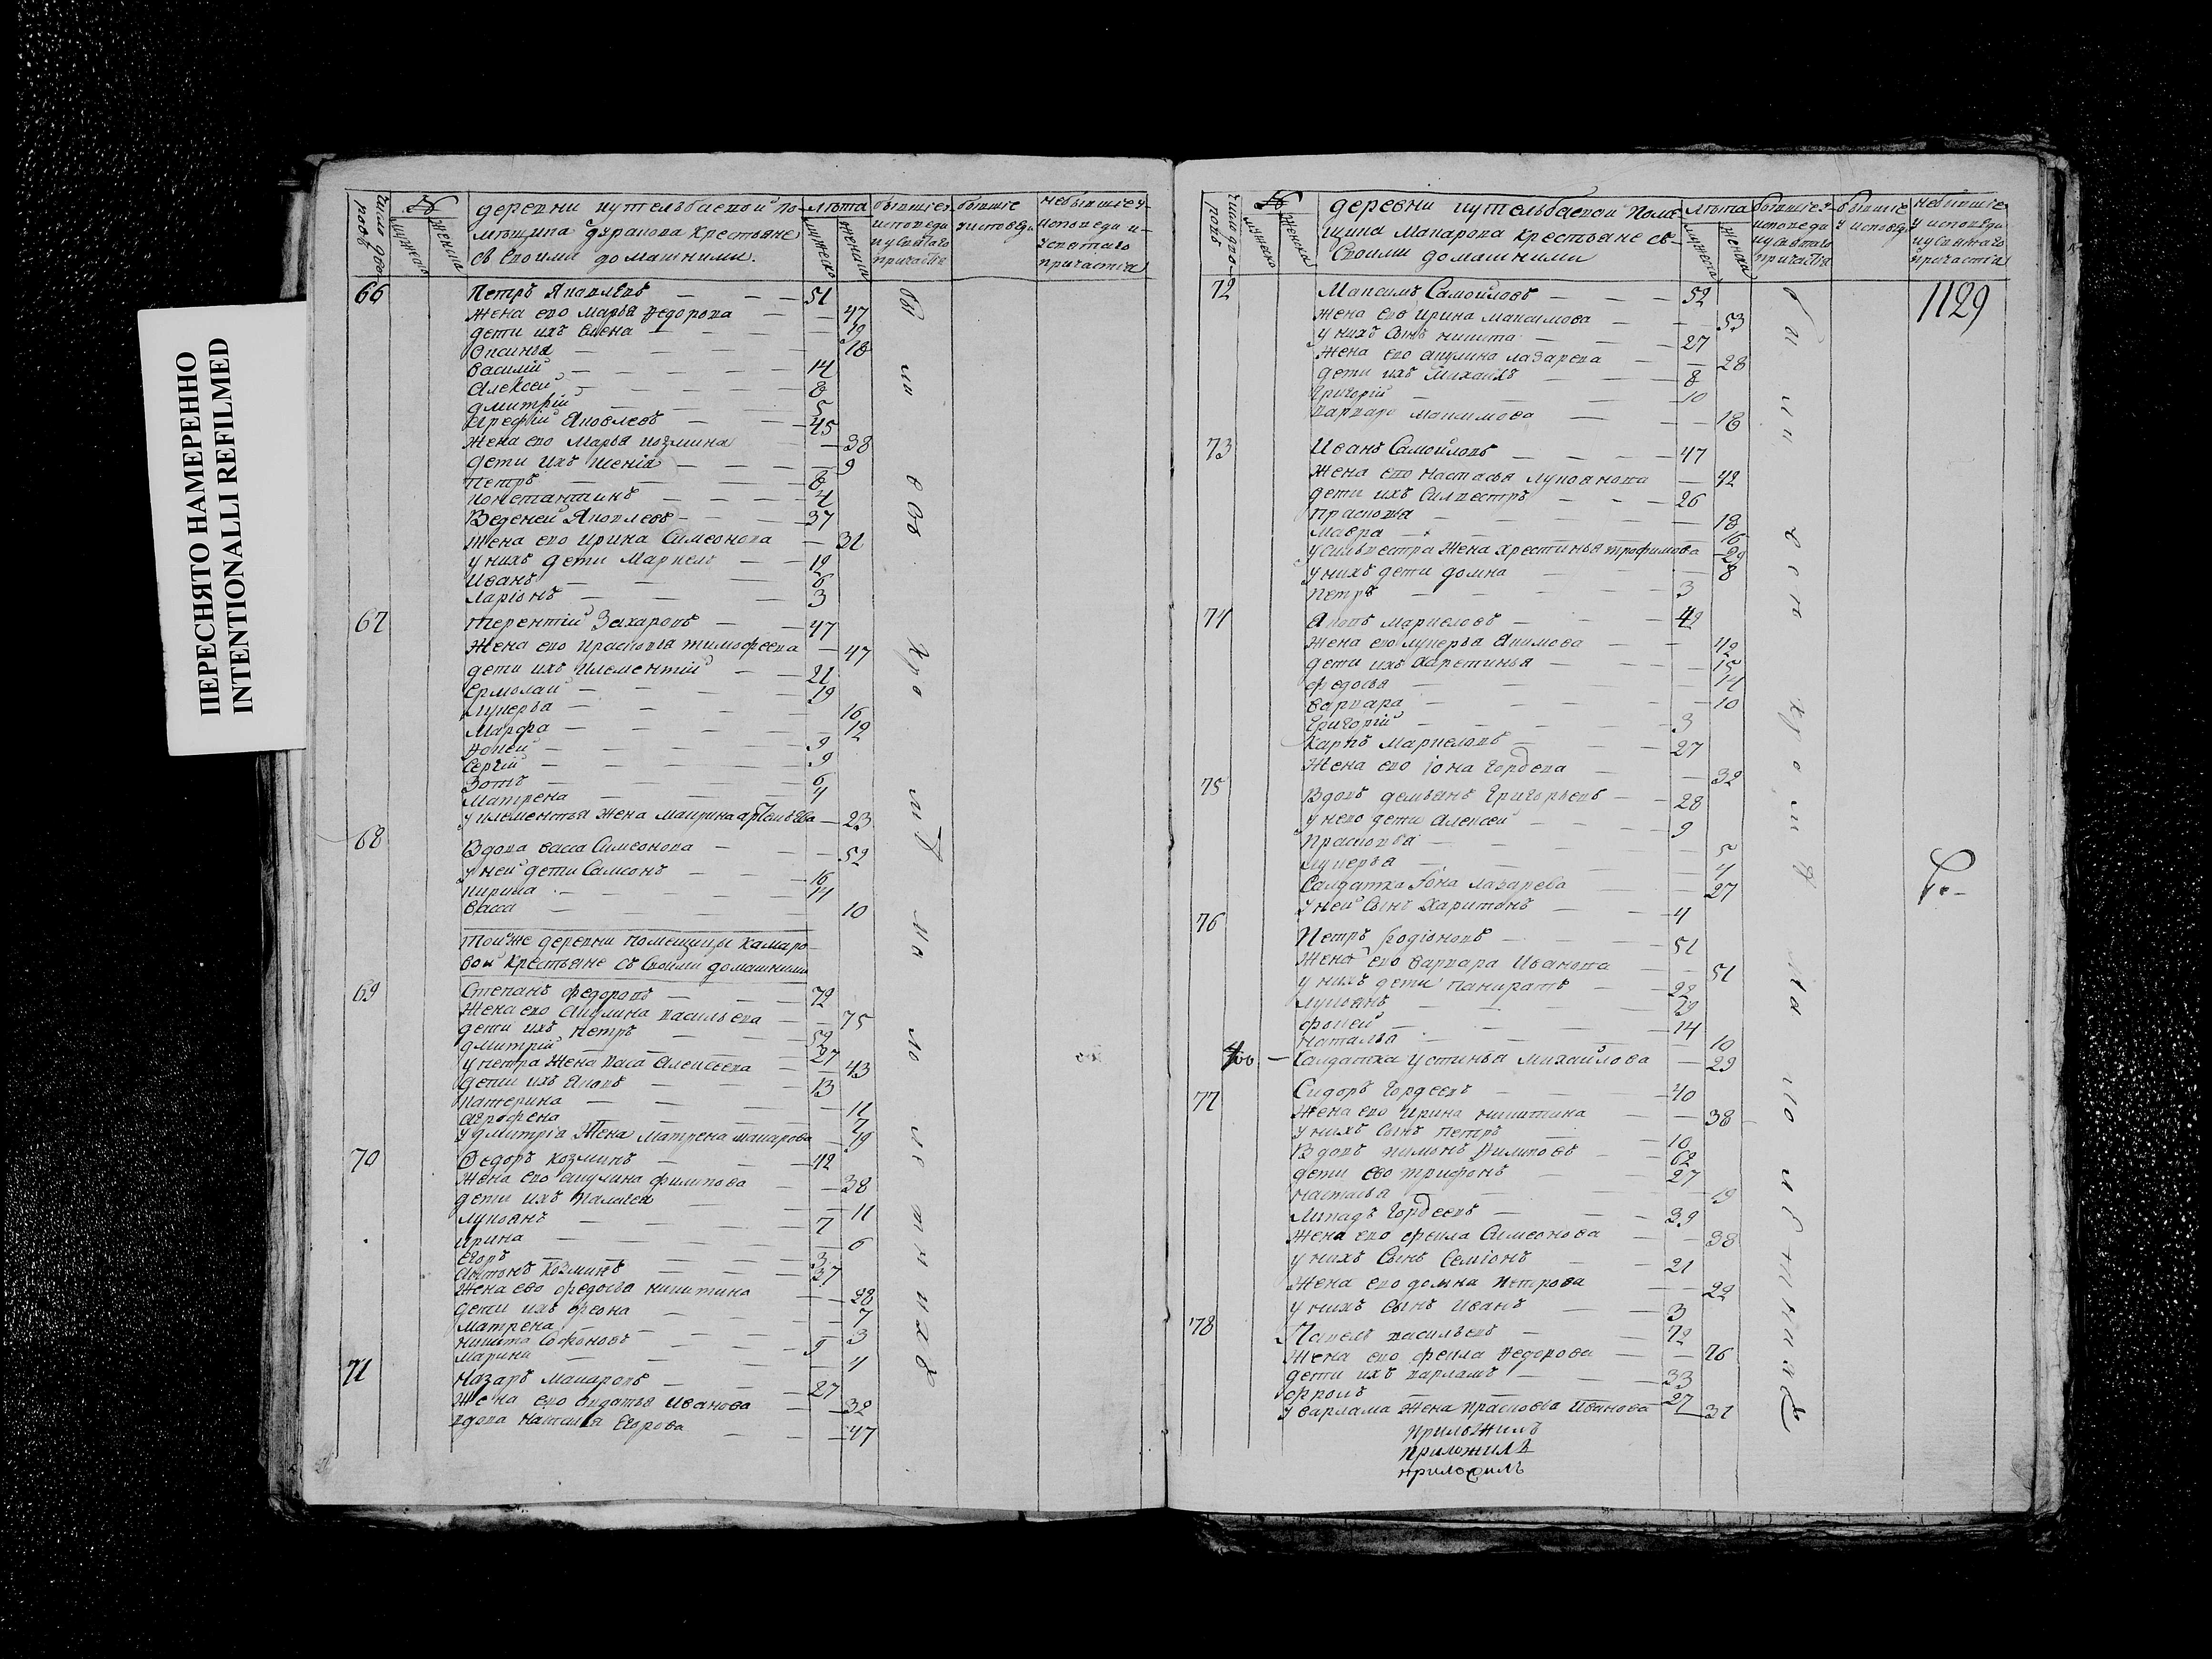 ПЕРЕСНЯТО НАМЕРЕННО
INTENTIONALLI REFILMED
Число дво
ровъ
№
мужеска
женска
деревни путельбаевой по-
мѣщика дуракова крестьяне
съ своими домашними.
лѣта
мужеска
женска
бывшие у
исповеди
и у святаго
причастия
бывшие
у исповеди
небывшие у
исповеди и
у святаго
причастия
66 Петръ Яковлевъ — — — 51
жена ево марья Федорова — — 47
дети ихъ елена — 19
Оксинья — — — — 18
василий — — — — 14
Алексей — — — — 8
дмитрій — — — 5
Яковлевъ — — 45
жена ево марья козмина — 38
дети ихъ — — — 9
Петръ — — — — 8
константинъ — — — — 4
Веденей Яковлевъ — — — 37
жена ево ирина Симеонова — 32
у нихъ дети Маркелъ — — 12
Иванъ — — — 6
Ларіонъ — — — 3
67 терентій Захаровъ — — 47
жена ево прасковья тимофеева — 47
дети ихъ илементій — — 21
Ермолай — — — 19
лукерья — — — 16
Марфа — — — 12
— — — 9
Сергій — — — 9
Зотъ — — — 6
матрена — — — 4
у илементья жена — 23
68 Вдова васса Симеонова — — 52
у ней дети Самсонъ — — 16
кирила — — — 14
васса — — — 10
тойже деревни помещицы камаро-
вой крестьяне съ своими домашними
69 Степанъ федоровъ — — 72
жена ево акулина васильева — — 75
дети ихъ петръ — — 52
дмитрій — — — 27
у петра жена васа алексеева — — 43
дети ихъ яковъ — — 13
катерина — — — 11
агрофена — — — 7
у дмитрія жена матрена макарова — 19
70 Федоръ козминъ — — 42
жена ево акулина филипова — — 38
дети ихъ — — 11
лукоянъ — — — 7
ирина — — — 6
Егоръ — — — 3
антонъ козминъ — — 37
жена ево федосья никитина — — 28
дети ихъ феона — — 7
матрена — — — 3
никита Софоновъ — — 9
марина — — — 4
71 назаръ макаровъ — — 27
жена ево Иванова — — 32
вдова наталья Егорова — — 47
Число дво-
ровъ
№
мужеска
женска
деревни путельбаевой поме
щика макарова крестьяне съ
своими домашними
лѣта
мужеска
женска
бывшие у
исповеди
и у святаго
причастия
бывшие
у исповеди
небывшие
у исповеди
и у святаго
причастия
1129
72 Максимъ Самойловъ — — — 52
жена ево ирина максимова — — 53
у нихъ сынъ никита — — 27
жена ево акулина лазарева — 28
дети ихъ михаилъ — — 8
Григорій — — — 10
варвара максимова — — 18
73 Иванъ Самойловъ — — — 47
жена ево настасья лукоянова — 42
дети ихъ Силвестръ — — — 26
прасковья — — — 18
мавра — — — 16
у Силвестра жена хрестинья трофимова — 29
у нихъ дети домна — — 8
петръ — — — 3
74 Яковъ маркеловъ — — — 42
жена ево лукерья акимова — — 42
дети ихъ харетинья — — 15
федосья — — — 14
варвара — — — 10
Григорій — — — 3
Карпъ маркеловъ — — — 27
жена ево іона Гордева — — 32
75 Вдовъ демьянъ Григорьевъ — — 28
у нево дети Алексей — — 9
прасковья — — — 5
лукерья — — — 4
Салдатка іона лазарева — — 27
у ней сынъ харитонъ — — 4
76 Петръ Родіоновъ — — — 51
жена ево варвара иванова — — 51
у нихъ дети панкратъ — — 22
лукоянъ — — — 19
фокей — — — 14
наталья — — — 10
Салдатка устинья михайлова — 29
77 Сидоръ Гордеевъ — — 40
жена ево ирина никитина — — 38
у нихъ сынъ петръ — — 10
Вдовъ — — 62
дети ево трифонъ — — 27
настасья — — — 19
Гордеевъ — — 39
жена ево фекла Симеонова — — 38
у нихъ сынъ Семіонъ — — 21
жена ево домна петрова — — 22
у нихъ сынъ иванъ — — 3
78 Павелъ васильевъ — — 72
жена ево фекла федорова — — 76
дети ихъ варламъ — — 33
фролъ — — — 27
у варлама жена прасковья иванова — 31
приложилъ
приложилъ
приложилъ